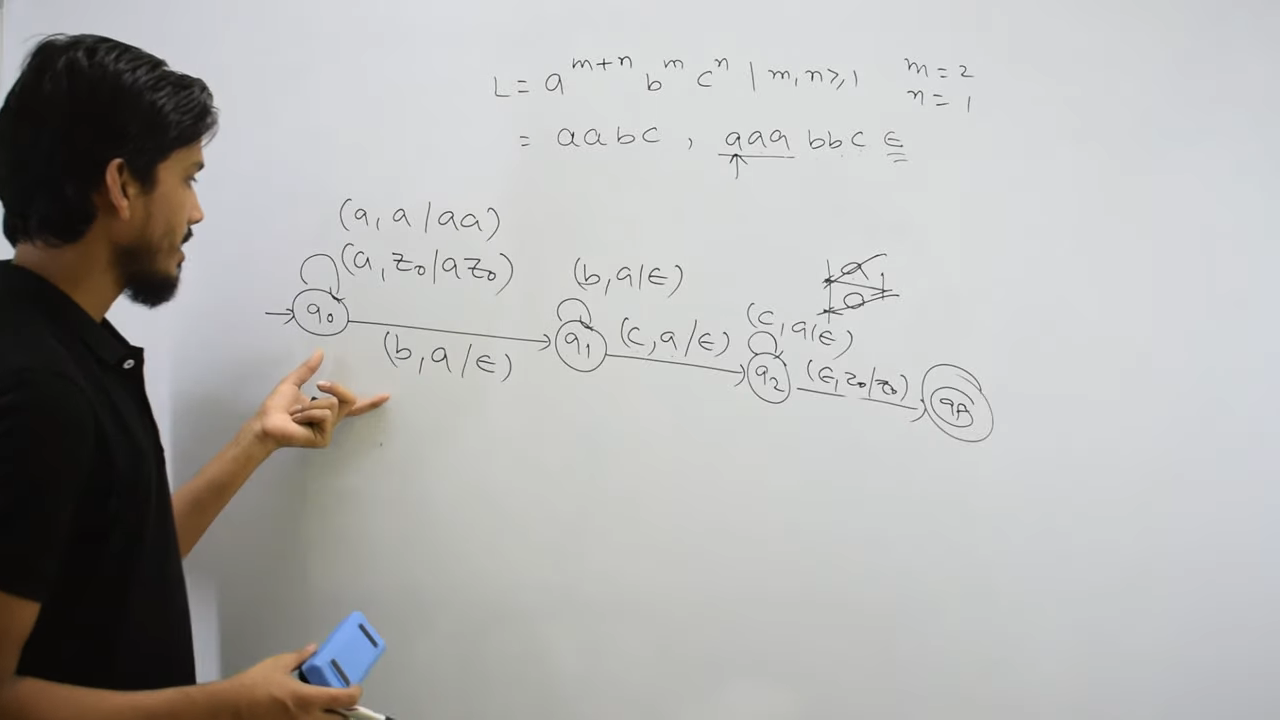 L = a^{m+n} b^m c^n | m, n ≥, 1
m = 2
n = 1
= aabc, aaa bbc ϵ
(a, a / aa)
(a, z₀ / az₀)
(b, a / ϵ)
(b, a / ϵ)
(c, a / ϵ)
(c, a / ϵ)
(ϵ, z₀ / z₀)
q₀
q₁
q₂
a
a